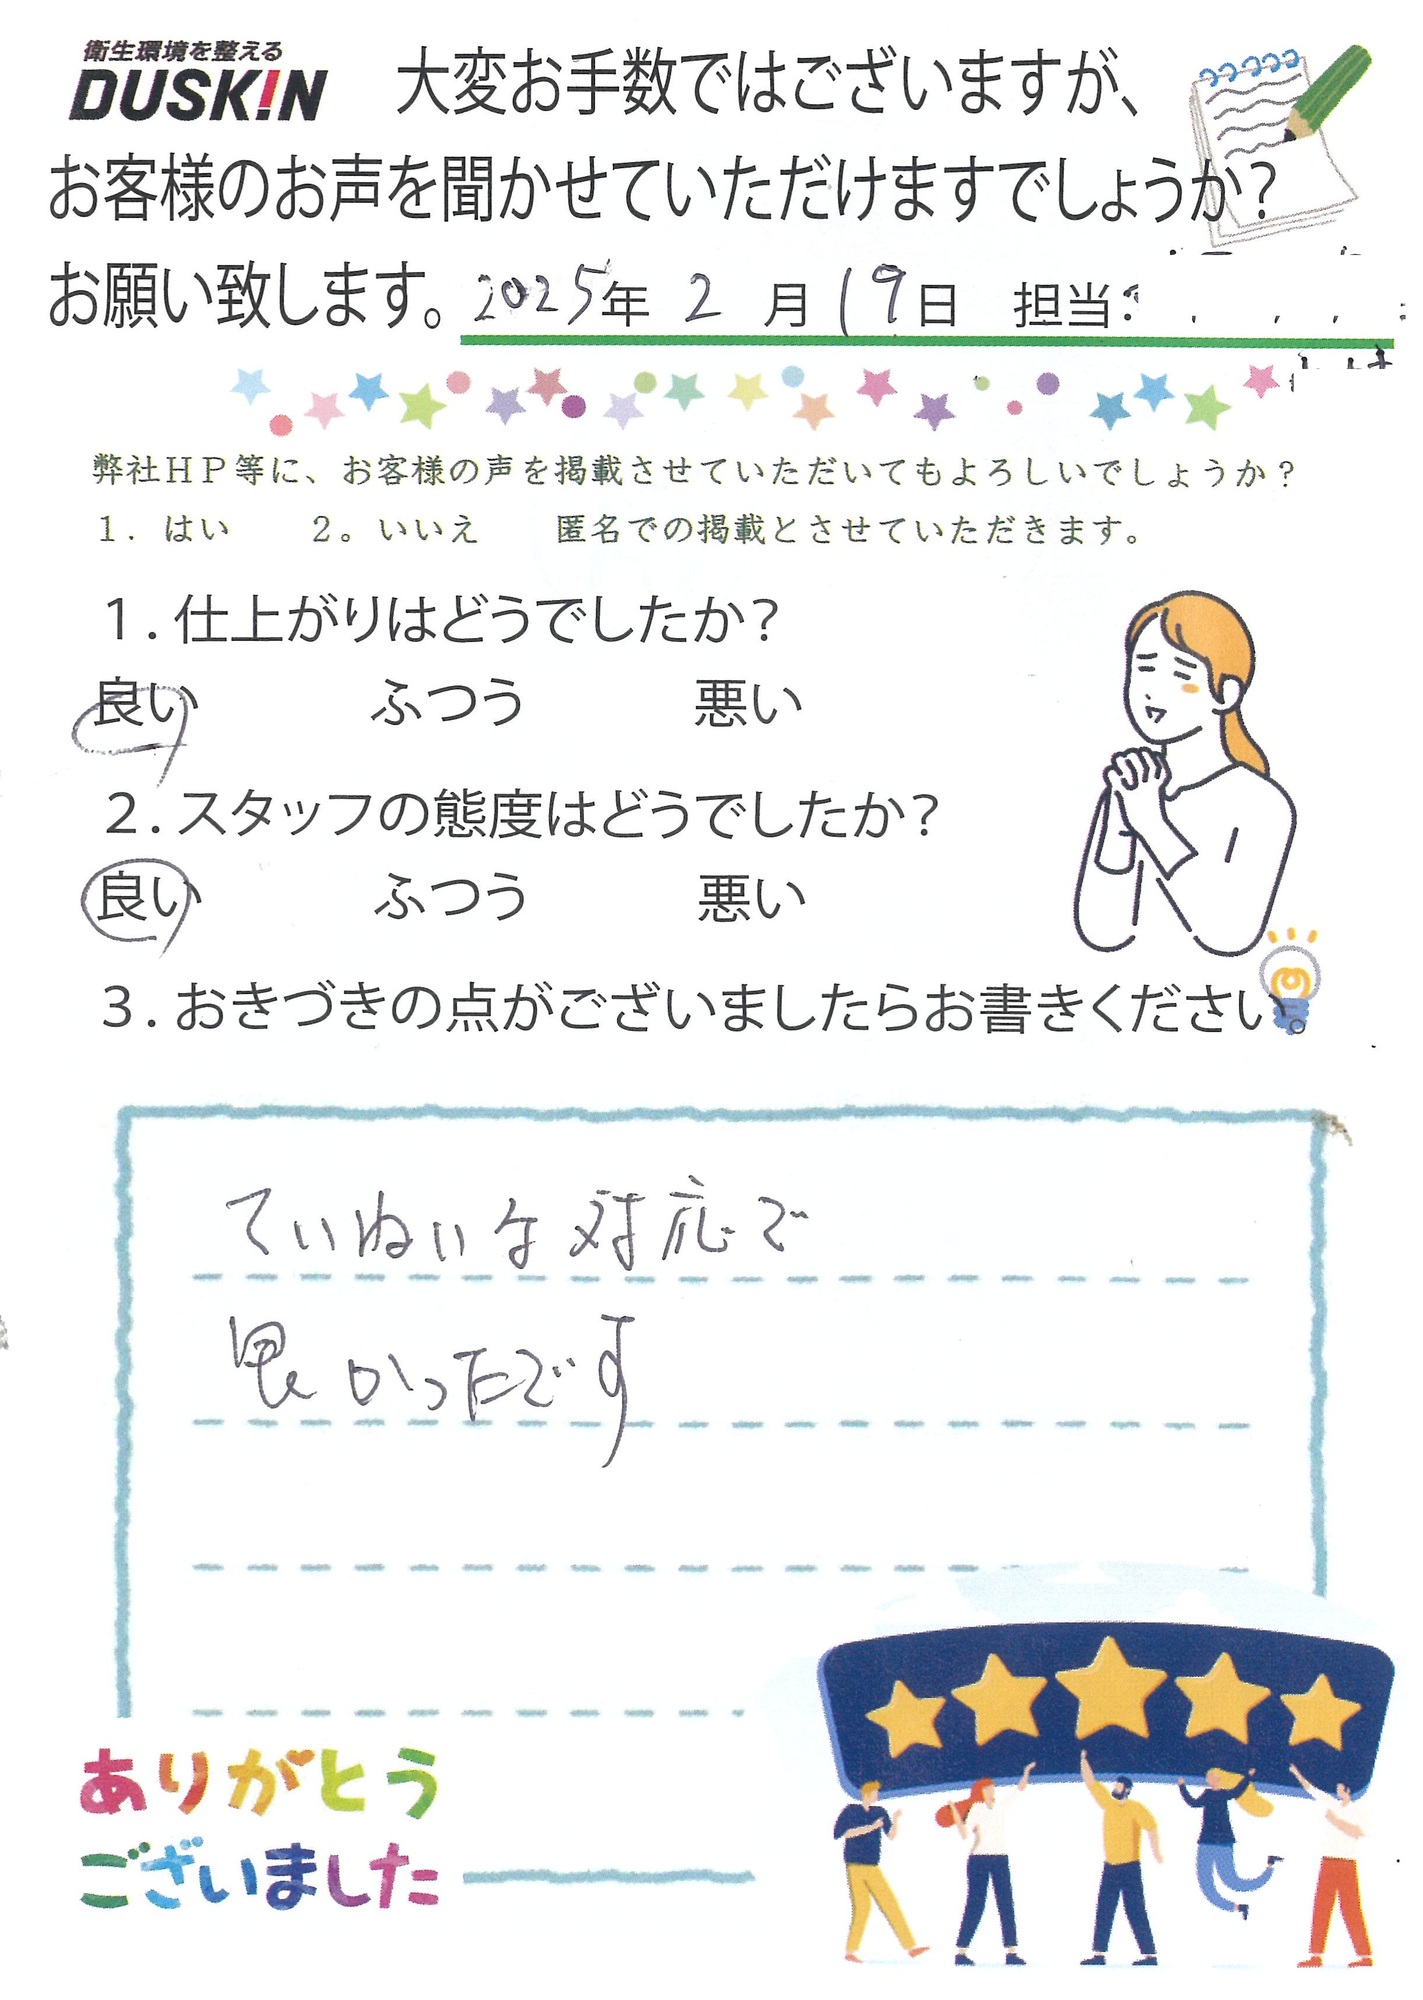 衛生環境を整える
DUSKIN
大変お手数ではございますが、
お客様のお声を聞かせていただけますでしょうか？
お願い致します。2025年 2月19日 担当:
弊社ＨＰ等に、お客様の声を掲載させていただいてもよろしいでしょうか？
１．はい ２。いいえ 匿名での掲載とさせていただきます。
１．仕上がりはどうでしたか？
良い ふつう 悪い
２．スタッフの態度はどうでしたか？
良い ふつう 悪い
３．おきづきの点がございましたらお書きください
ていねいな対応で
良かったです
ありがとう
ございました